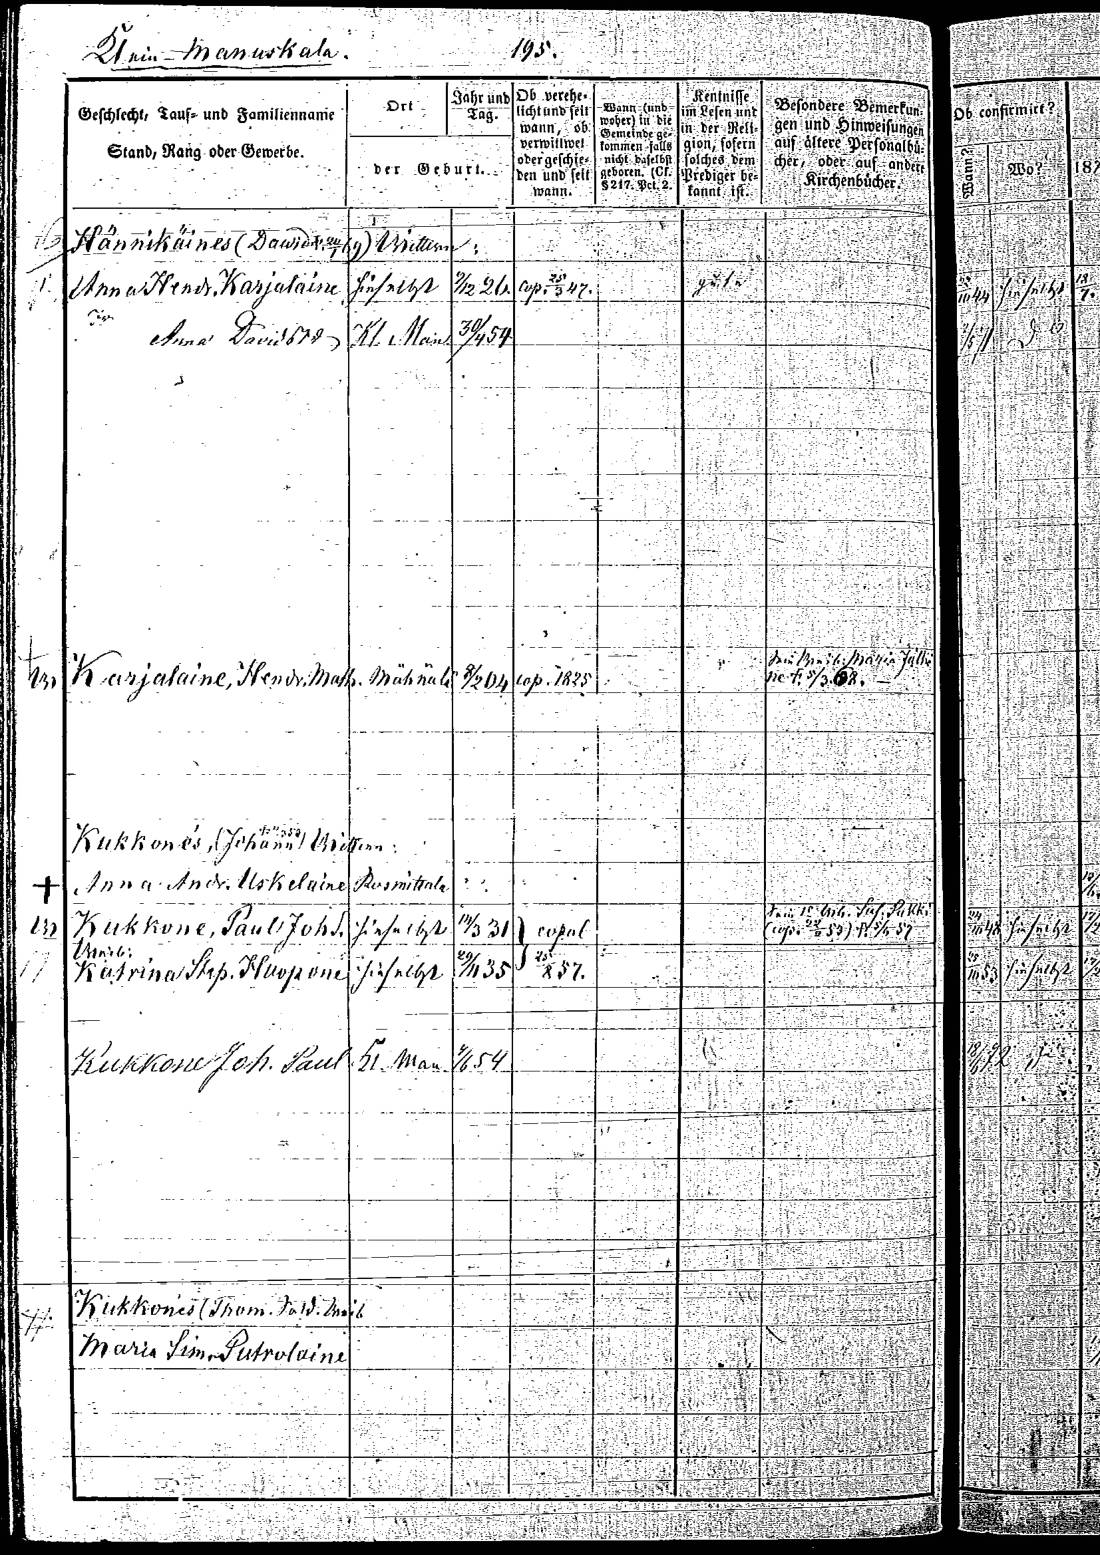 Klein-Manuskala. 195.
Geschlecht, Tauf- und Familienname
Stand, Rang oder Gewerbe.
Ort
der Geburt.
Jahr und
Tag.
Ob verehe-
licht und seit
wann, ob
verwittwet
oder geschie-
den und seit
wann.
Wann (und
woher) in die
Gemeinde ge-
kommen falls
nicht daselbst
geboren. (Cf.
§ 217. Pct. 2.
Kentnisse
im Lesen und
in der Reli-
gion, sofern
solches dem
Prediger be-
kannt ist.
Besondere Bemerkun-
gen und Hinweisungen
auf ältere Personalbü-
cher, oder auf andere
Kirchenbücher.
Ob confirmirt?
Wann?
Wo?
187
Hännikäines (David) Wittwe:
Anna Hendr. Karjalaine hieselbst 9/12 26. cop. 25/3 47. gut hieselbst
Anna Davids Kl. Man 30/4 54
Karjalaine, Hendr. Math. Mähnälä 8/2 04 cop. 1825 Sein Weib: Maria
† 5/3 68.
Kukkones, (Johann) Wittwe:
Anna Andr. Uskelaine Rosmittala
Kukkone, Paul Joh. hieselbst 14/3 31 copul
Weib:
Katrina Step. Huopone hieselbst 29/11 35 25/8 57. 53 hieselbst
Kukkone Joh. Paul Kl. Man 4/6 54
Kukkones (Thom. Sold. Weib
Maria Sim. Putrolaine